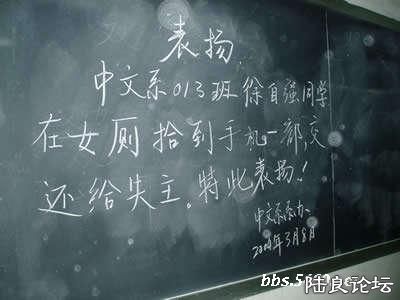 表扬
中文系013班徐自强同学
在女厕拾到手机一部,交
还给失主。特此表扬!
中文系系办
年3月8日
陆良论坛